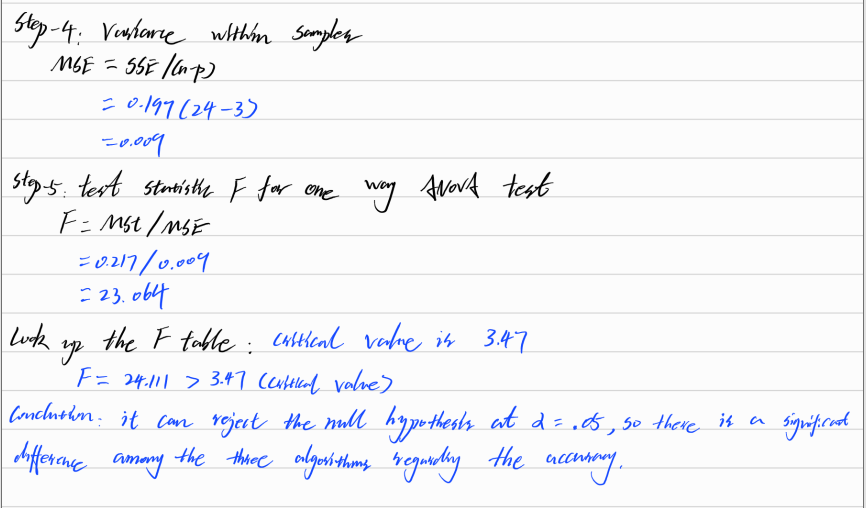 Step-4: Variance within samples
MSE = SSE/(n-p)
= 0.197(24-3)
=0.009
Step-5: test statistic F for one way ANOVA test
F = MSt/MSE
=0.217/0.009
= 23.064
Look up the F table: critical value is 3.47
F= 24.111 > 3.47 (critical value)
Conclusion: it can reject the null hypothesis at α = .05, so there is a significant
difference among the three algorithms regarding the accuracy.